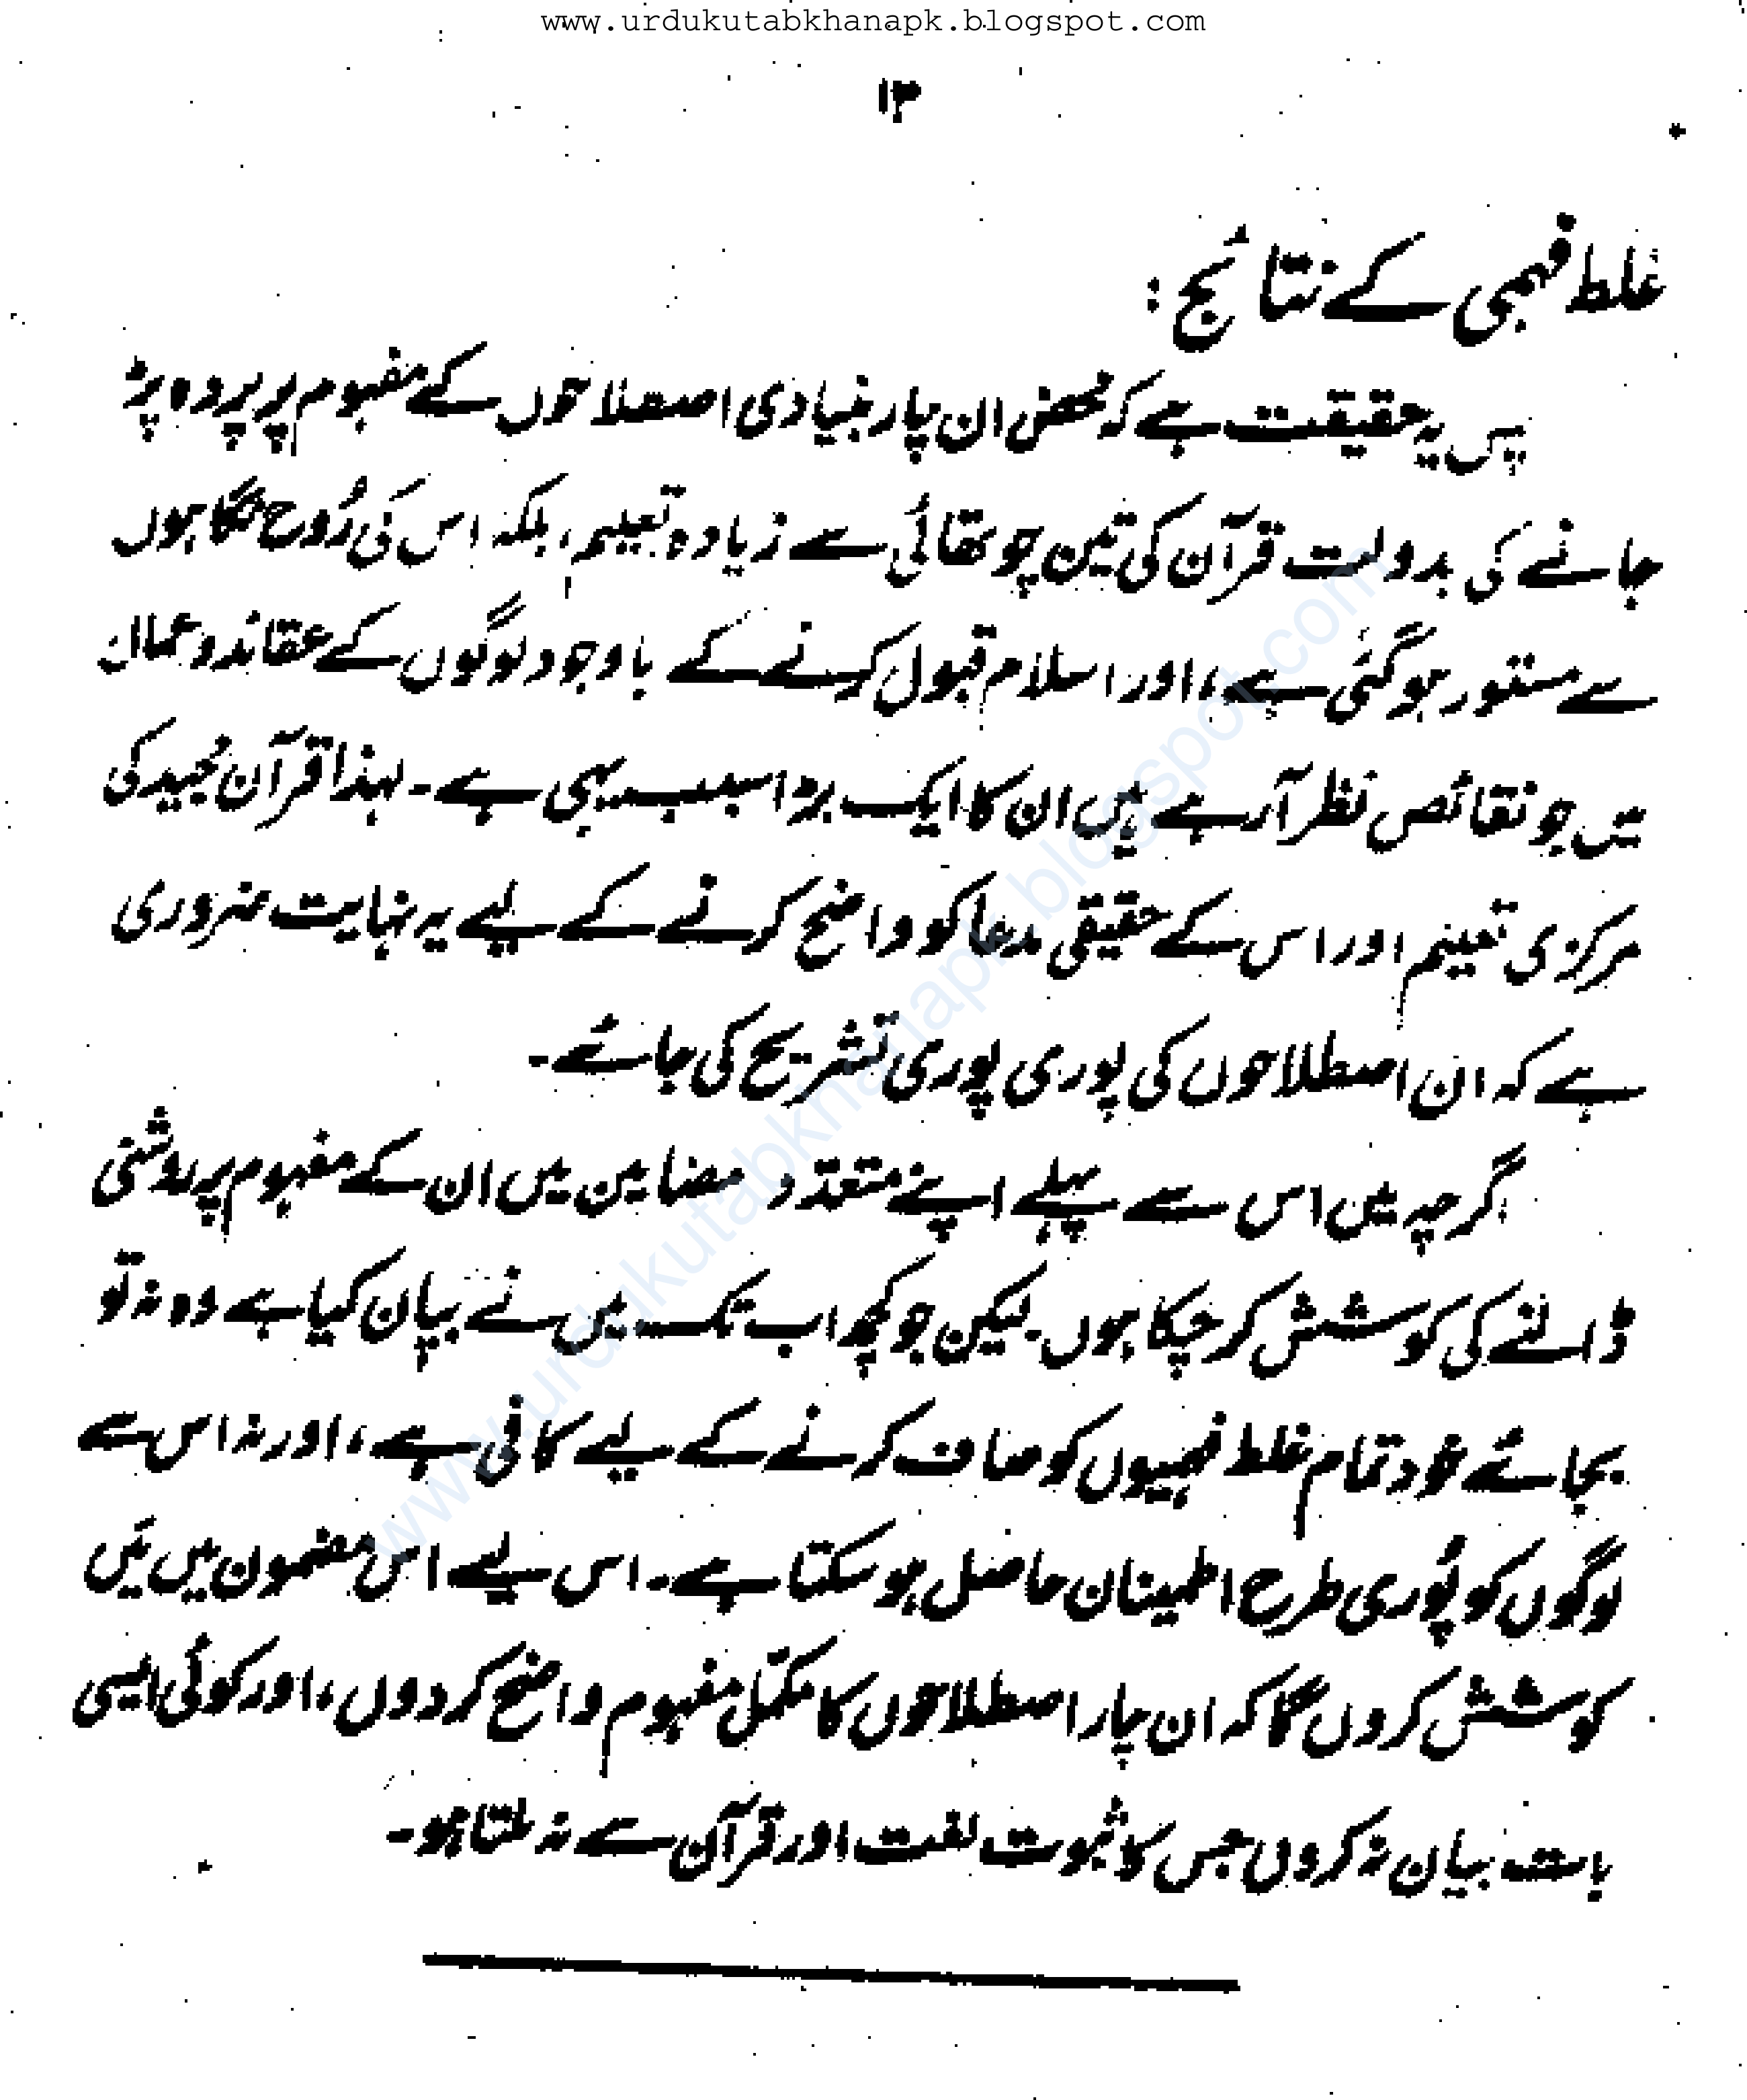 www.urdukutabkhanapk.blogspot.com
۱۳
غلط فہمی کے نتائج:
پس یہ حقیقت ہے کہ محض ان چار بنیادی اصطلاحوں کے مفہوم پر پردہ پڑ
جانے کی بدولت قرآن کی تین چوتھائی سے زیادہ تعلیم، بلکہ اس کی رُوح نگاہوں
سے مستور ہوگئی ہے، اور اسلام قبول کرنے کے باوجود لوگوں کے عقائد و اعمال
میں جو نقائص نظر آرہے ہیں ان کا ایک بڑا سبب یہی ہے۔ لہذا قرآن مجید کی
مرکزی تعلیم اور اس کے حقیقی مدعا کو واضح کرنے کے لیے یہ نہایت ضروری
ہے کہ ان اصطلاحوں کی پوری پوری تشریح کی جائے۔
گرچہ میں اس سے پہلے اپنے متعدّد مضامین میں ان کے مفہوم پر روشنی
ڈالنے کی کوشش کر چکا ہوں۔ لیکن جو کچھ اب تک میں نے بیان کیا ہے وہ نہ تو
بجائے خود تمام غلط فہمیوں کو صاف کرنے کے لیے کافی ہے، اور نہ اس سے
لوگوں کو پُوری طرح اطمینان حاصل ہو سکتا ہے۔ اس لیے اس مضمون میں مَیں
کوشش کروں گا کہ ان چار اصطلاحوں کا مکمّل مفہوم واضح کر دوں، اور کوئی ایسی
بات بیان نہ کروں جس کا ثبوت لغت اور قرآن سے نہ ملتا ہو۔
www.urdukutabkhanapk.blogspot.com